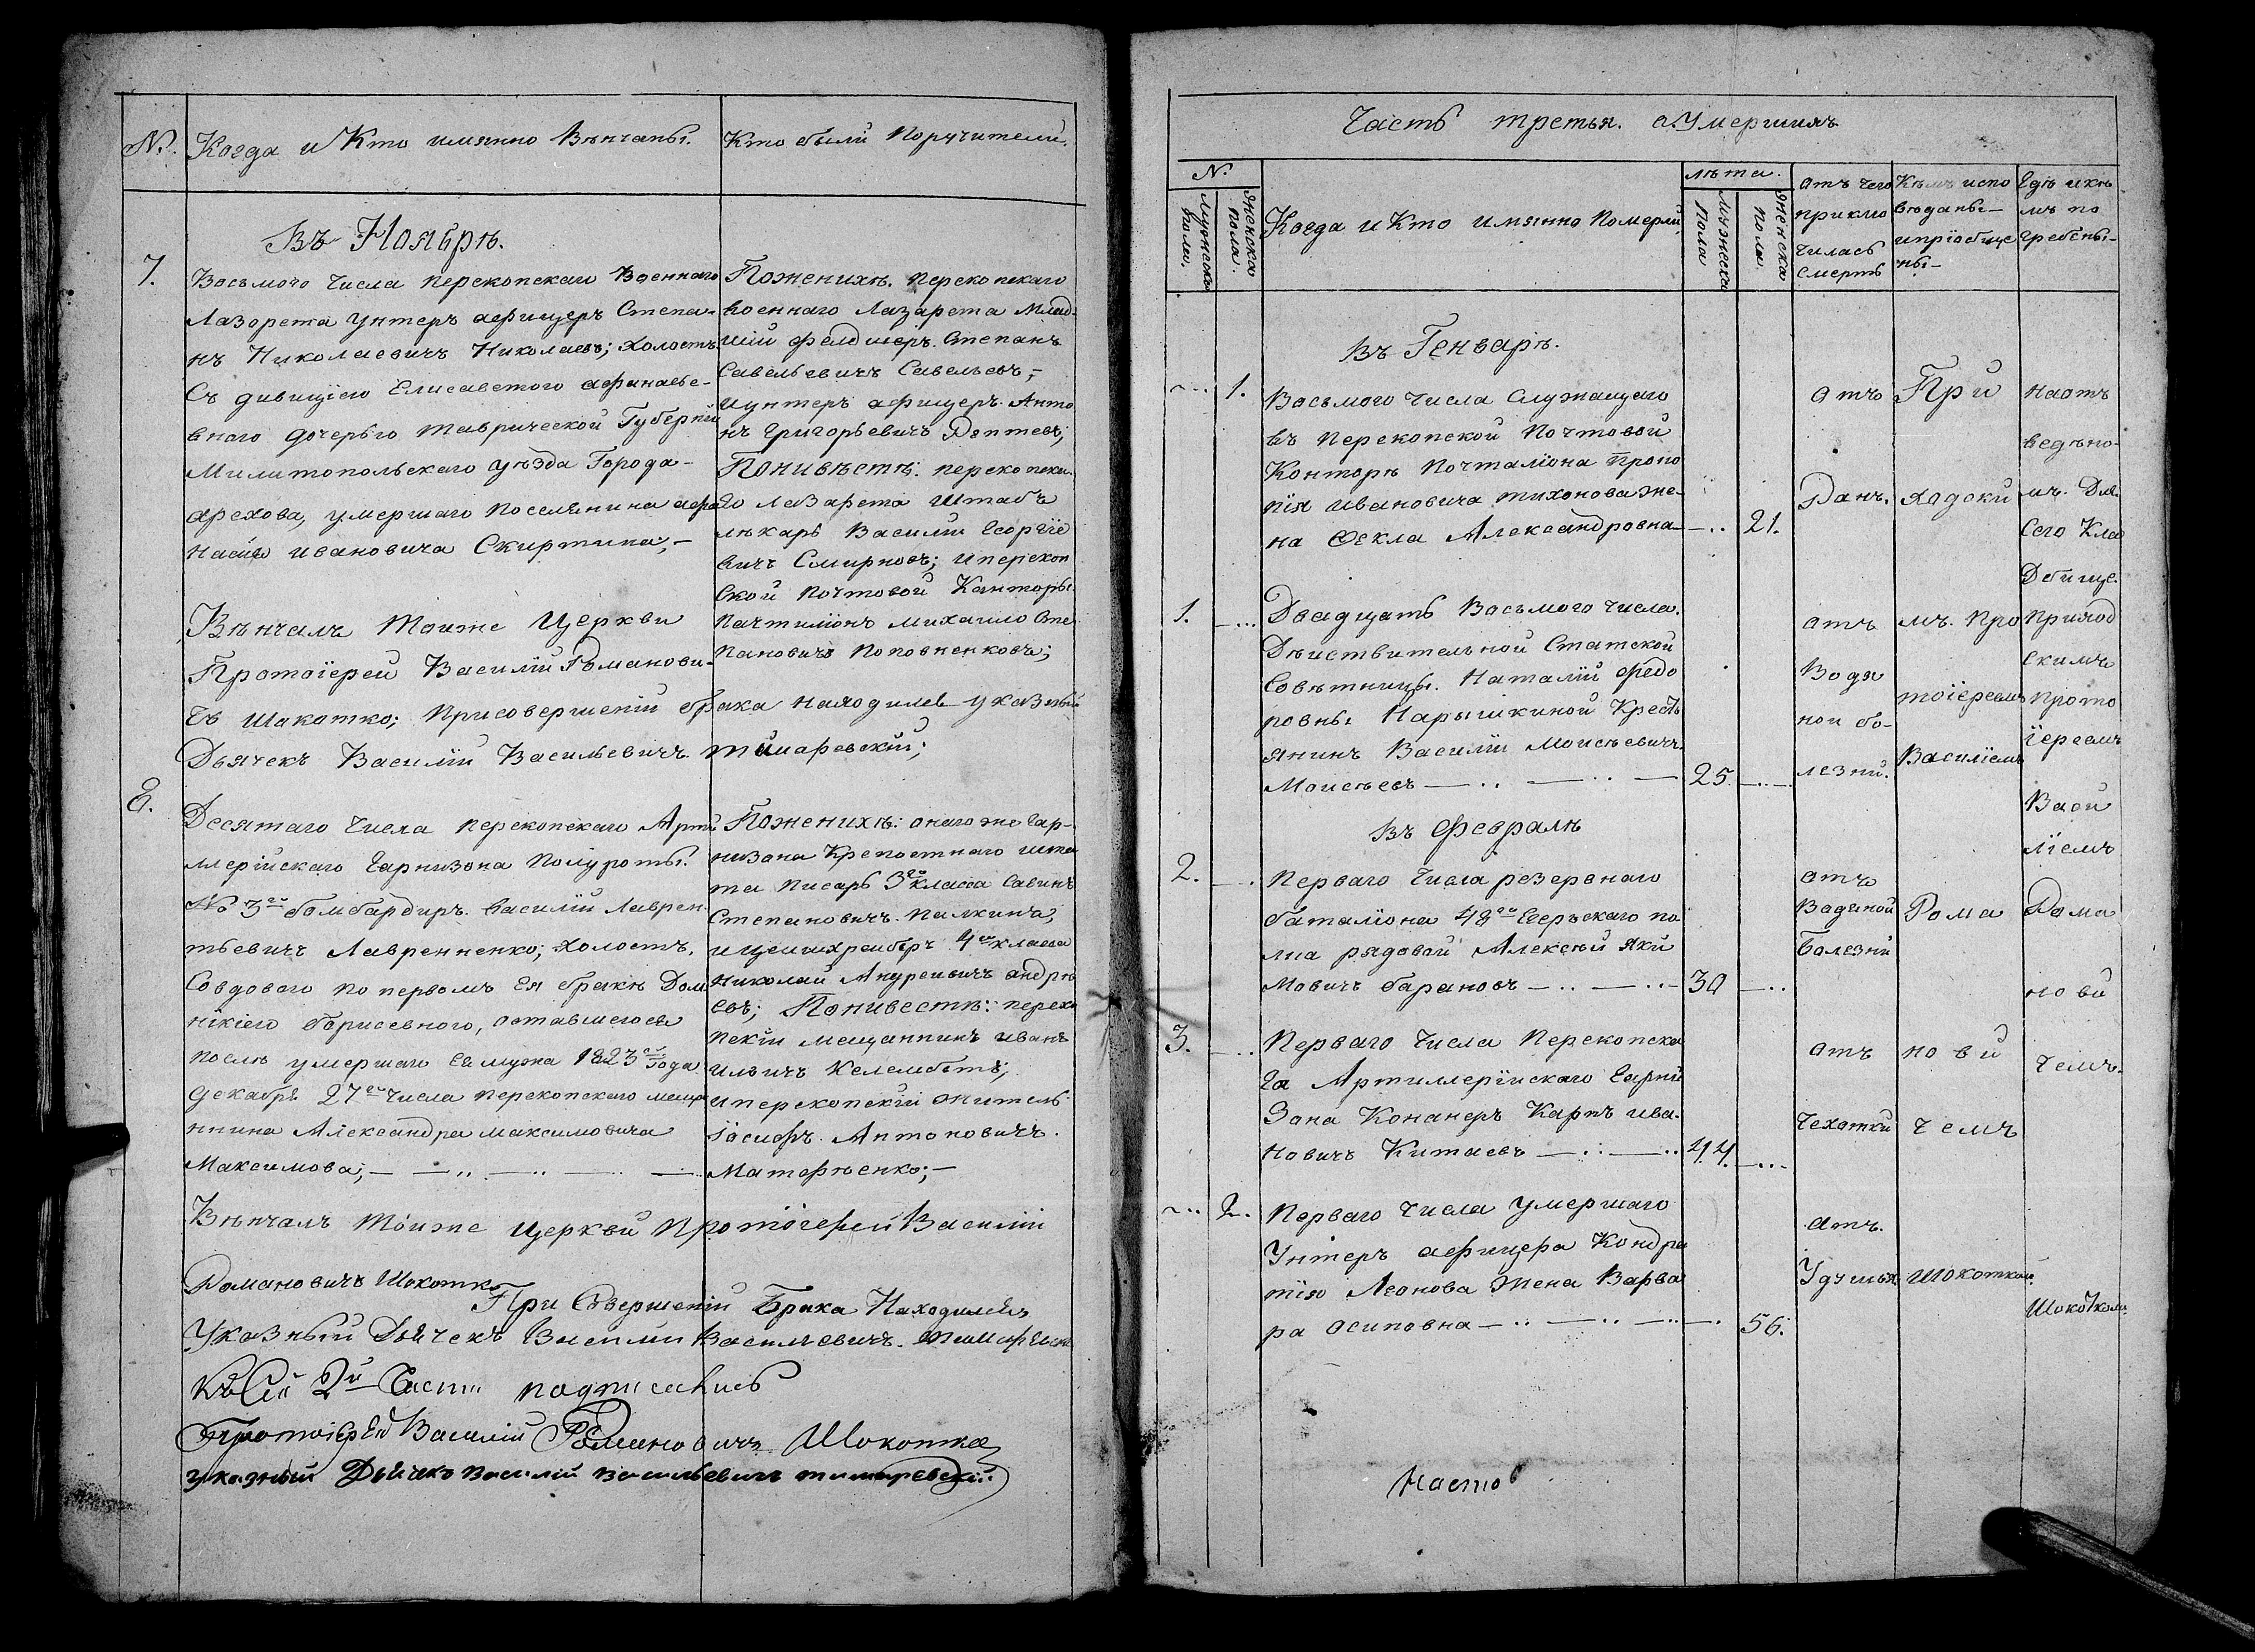 №.
Когда и Кто имянно Вѣнчаны.
Кто были Поручители.
Въ Ноябрѣ.
7.
Восьмого Числа перекопскаи Военнаго
Лазорета унтеръ афицеръ Степа-
нъ Николаевичъ Николаевъ; холостъ.
Съ дивицiею Елисаветого афинасье-
вного дочерью таврической Губернiи
Милитопольскаго уѣзда Города-
арехова, умершаго поселянина афа
насия ивановича Скиртина;-
Поженихѣ. перекопскаго
военнаго Лазарета Млад-
шiй фелдшеръ. Степанъ
Савельевичъ Савельевъ;-
иунтеръ афицеръ. Анто
нъ Григорьевичъ
Понивѣстѣ: перекопска
го лазарета штабъ
лѣкарь Василiй Георгiе
вичъ Смирновъ; иперекоп
ской почтовой Канторы.
Пачтилiонъ михаило Сте
пановичъ поповненковъ;
Вѣнчалъ тоиже Церкви
Протоiерей Василiй Романови-
чъ Шокотко; присовершенiи брака находился указный
Дьячекъ Василiй Васильевичъ. тимаревскiй;
8.
Десятаго Числа перекопскаго Арти
ллерiйскаго Гарнизона полуроты.
№ 3го бомбардиръ. василiй Лаврен-
тьевичъ Лавренненко; холостъ.
Совдового по первомъ Ея бракѣ Дом
нiкiего борисевного, оставшегося
послѣ умершаго Ея мужа 1823го года
декабря 27го числа перекопского меща
нина Александра максимовича
Максимова;-
Поженихѣ: онаго же Гар-
низона Крепостнаго шта
та писарь 3го класса Савинъ
Степановичъ. палкинъ;
ицейхшрейберъ 4го класса
николаи Андреивичъ андрѣ
евъ; Понивестѣ: переко
пскiи мещаннинъ иванъ
иличъ Келембетъ;
иперекопскiй житель
iосифъ. Антоновичъ.
Матфѣенко;-
Вѣнчалъ тоиже церкви протоiерей Василiи
Романовичъ Шокотко
При Совершенiи Брака Находился
Указный Дьячекъ Василiи Василевичъ.
КъСей 2й Части подписались
Протоiерей Василiй Романовичъ Шокотка
указный Дьячекъ василiй васильевичъ тимаревскiй.
Часть третья. аумершихъ
№.
мужеска пола.
женска пола.
Когда и Кто имянно Померли
лѣта.
мужеска пола
женска пола.
отъ чего приклю чилась смерть
Кѣмъ испо вѣданы- ипрiобще ны-
Гдѣ икѣ мъ по гребены-
Въ Генварѣ.
1.
Восьмого числа Служащаго
въ перекопской Почтовой
Конторѣ почталiона проко
пiя ивановича тихонова же-
на Фекла Александровна-
21.
отъ
Родъ.
1.
Двадцать Восьмого числа.
Дѣиствительной Статской
Совѣтницы. Наталiи федо
ровны Нарышкиной Кресть
янинъ Василiи Моисѣевичъ.
Моисѣевъ
25.
отъ
Водя
ной бо-
лезни.
Въ Февралѣ
2.
Перваго Числа резервнаго
баталiона 48го Егерьскаго по
лка рядовой Алексѣй Яки
мовичъ барановъ
30
отъ
Вадяной
Болезни
3.
Перваго Числа Перекопска
га Артиллерiйскаго Гарни
Зона Конанеръ Карпъ ива-
новичъ Китаевъ
44
отъ
Чехотки
2.
Перваго Числа умершаго
Унтеръ афицера Кондра
тiя Леонова жена Варва
ра Осиповна
56.
атъ.
Удушья
При
ходски
мъ. про
тоiереемъ
Василiемъ
Рома
нови
чемъ
Шокоткою.
наотъ
ведѣно-
мъ. Для
Сего Кла
Дбище.
Приход
скимъ
прото
iереемъ
Васи
лiемъ
Рома
нови
чемъ.
Шокоткою.